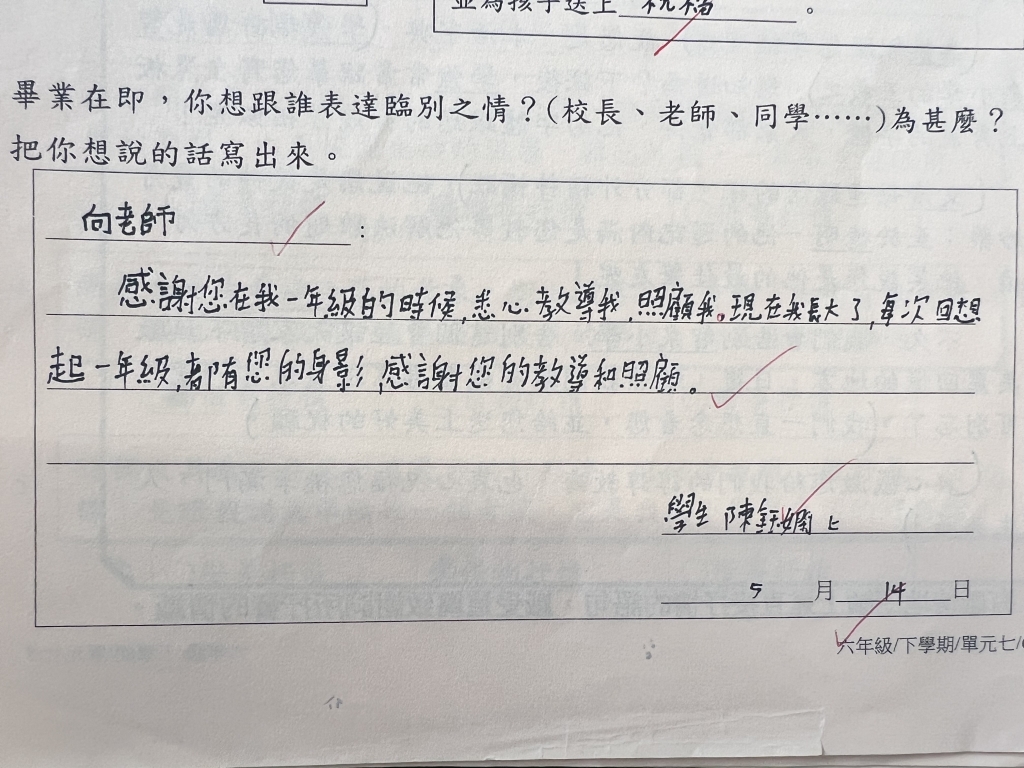 並為孩子送上 祝福 。
畢業在即，你想跟誰表達臨別之情？(校長、老師、同學……)為甚麼？
把你想說的話寫出來。
向老師：
感謝您在我一年級的時候,悉心教導我,照顧我。現在我長大了,每次回想
起一年級,都有您的身影,感謝您的教導和照顧。
學生 陳鈺嫻上
5 月 14 日
六年級/下學期/單元七/